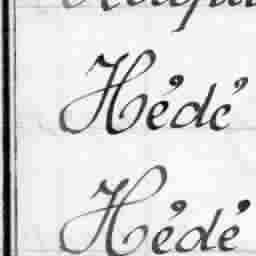 Hédé
Hédé